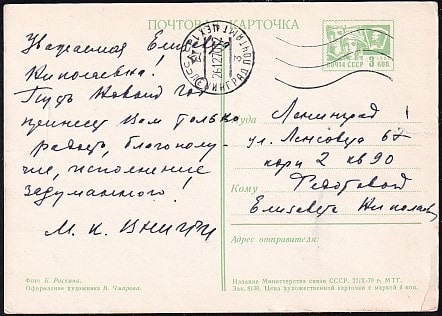 ПОЧТОВАЯ КАРТОЧКА
ПОЧТА СССР 3 КОП
Уважаемая Елизавета
Николаевна!
Пусть Новый год
принесет Вам только
радость, благополу-
чие, исполнение
задуманного!
М. К.
Куда Ленинград
ул. Ленсовета 67
корп 2 кв 90
Кому
Елизавете Николаев
Адрес отправителя:
Фото Б. Раскина.
Оформление художника В. Чмарова.
Издание Министерства связи СССР. 27/X-70 г. МТГ.
Зак. 8130. Цена художественной карточки с маркой 4 коп.